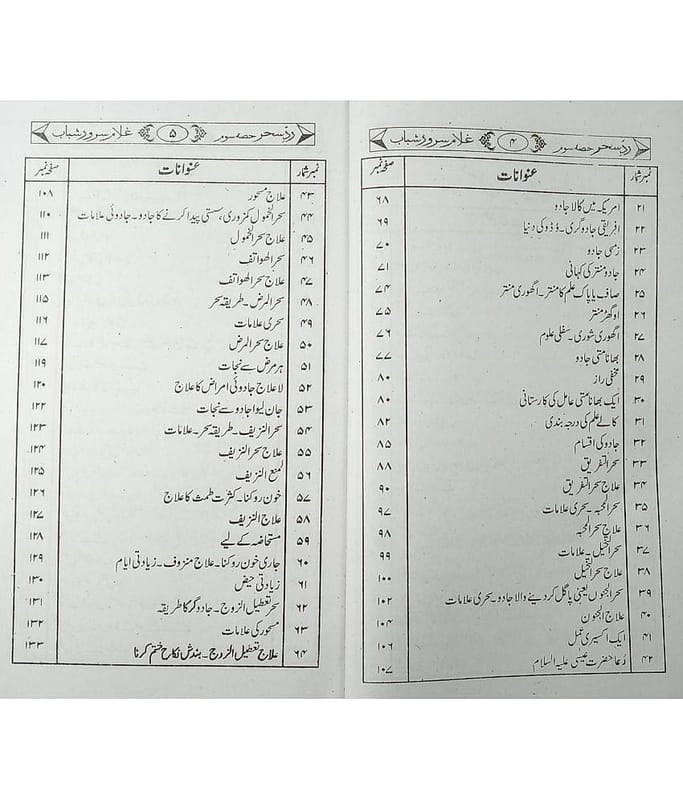 ردِّ سحر حصہ سوم ۴ غلام سرور شباب
نمبر شمار عنوانات صفحہ نمبر
۲۱ امریکہ میں کالا جادو ۶۸
۲۲ افریقی جادوگری۔ وُڈو کی دنیا ۶۹
۲۳ زمی جادو ۷۰
۲۴ جادو منتر کی کہانی ۷۱
۲۵ صاف یا پاک علم کا منتر۔ اگھوری منتر ۷۴
۲۶ اوگھڑ منتر ۷۵
۲۷ اگھوری شوری۔ سفلی علوم ۷۶
۲۸ بھانامتی جادو ۷۷
۲۹ مخفی راز ۸۰
۳۰ ایک بھانامتی عامل کی کارستانی ۸۰
۳۱ کالے علم کی درجہ بندی ۸۲
۳۲ جادو کی اقسام ۸۵
۳۳ سحر التفریق ۸۸
۳۴ علاج سحر التفریق ۹۰
۳۵ سحر المحبہ۔ سحری علامات ۹۷
۳۶ علاج سحر المحبہ ۹۸
۳۷ سحر التخیل۔ علامات ۹۹
۳۸ علاج سحر التخیل ۱۰۰
۳۹ سحر الجنون یعنی پاگل کر دینے والا جادو۔ سحری علامات ۱۰۲
۴۰ علاج الجنون ۱۰۴
۴۱ ایک اکسیری عمل ۱۰۶
۴۲ دُعا حضرت عیسیٰ علیہ السلام ۱۰۷
ردِّ سحر حصہ سوم ۵ غلام سرور شباب
نمبر شمار عنوانات صفحہ نمبر
۴۳ علاج مسحور ۱۰۸
۴۴ سحر الخمول کمزوری، سستی پیدا کرنے کا جادو۔ جادوئی علامات ۱۱۰
۴۵ علاج سحر الخمول ۱۱۱
۴۶ سحر الھواتف ۱۱۲
۴۷ علاج سحر الھواتف ۱۱۳
۴۸ سحر المرض۔ طریقہ سحر ۱۱۵
۴۹ سحری علامات ۱۱۶
۵۰ علاج سحر المرض ۱۱۷
۵۱ ہر مرض سے نجات ۱۱۹
۵۲ لاعلاج جادوئی امراض کا علاج ۱۲۰
۵۳ جان لیوا جادو سے نجات ۱۲۲
۵۴ سحر النزیف۔ طریقہ سحر۔ علامات ۱۲۳
۵۵ علاج سحر النزیف ۱۲۴
۵۶ لمنع النزیف ۱۲۵
۵۷ خون روکنا۔ کثرت طمث کا علاج ۱۲۶
۵۸ علاج النزیف ۱۲۷
۵۹ مستحاضہ کے لیے ۱۲۸
۶۰ جاری خون روکنا۔ علاج منزوف۔ زیادتی ایام ۱۲۹
۶۱ زیادتی حیض ۱۳۰
۶۲ سحر تعطیل الزوج۔ جادوگر کا طریقہ ۱۳۱
۶۳ مسحور کی علامات ۱۳۲
۶۴ علاج تعطیل الزوج۔ بندش نکاح ختم کرنا ۱۳۳